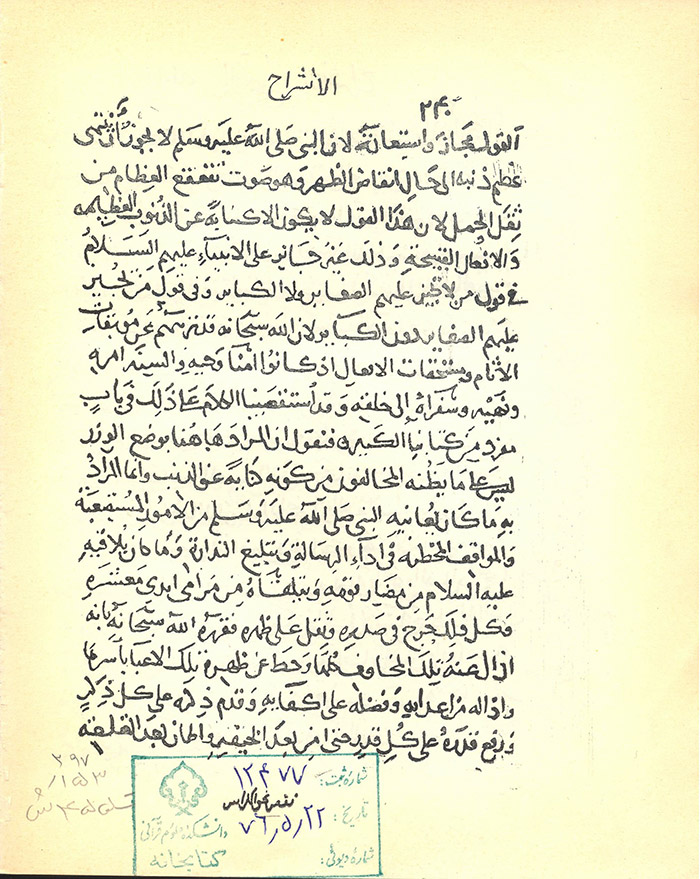 الأنشراح
٢۴٠
القول مجاز واستعارة لان النبى صَلى اللهُ عليَه وسَلم لا يجوز أن ينتهى
عظم ذنبه الى حَال انقاض الظهر وهو صوت تقعقع العظام من
ثِقَل الحِمل لان هذا القول لا يكون الا كناية عن الذنوب العَظيمه
وَالافعال القبيحَة وَذلك غير جَائز على الانبيآء عليهم السَّلامُ
فى قول من لا يجيز عليهم الصغاير ولا الكباير وفى قول مَن يجيز
عليهم الصغاير دون الكباير لان الله سبحَانه قد نزههم عَن موبقات
الآثام ومسحقات الافعال اذ كانوا أمنآ وحيه والسنة امره
ونَهيْه وسفرآءَه إلى خلقه وَقد استقصينا الكلام عَلى ذلك فى بابٍ
مفرد مِن كتابنا الكبير فنقول ان المراد هَاهُنا بوضع الوِزر
ليسَ على مَا يَظنه المخالفون من كونه كنايةً عن الذنب وانما المرادُ
به مَا كان يُعانيه النبى صَلى اللهُ عليَه وَسَلم من الامُور المستصعَبة
والمواقف الخطره فى ادآء الرسَالة وَتبليغ النذارة وَمَا كان يُلاقيهِ
عليه السلام مِن مضار قومِه وَيتلقاهُ مِن مَرامى ايدى مَعشَره
وَكل ذلك حَرج فى صَدره وثقل على ظهره فقرره الله سبحَانهُ بانه
ازال عَنهُ تلك المخاوف كلها وَحط عن ظهره تلك الاعبآ باسرها
واداله من اعدائِه وفضّله على اكفائه وَقدم ذكره على كل ذكرٍ
وَرفع قدرَهُ على كُل قدرٍ حتى امن بعدَ الخيفه واطمان بعد القلقه
٢٩٧
١٥٣ /
شماره ثبت: ١٢۴٧٧
تاريخ: ٧۶,۵,٢٢
دانشكدهٔ علوم قرآنى
كتابخانه
شمارهٔ ديوئى: